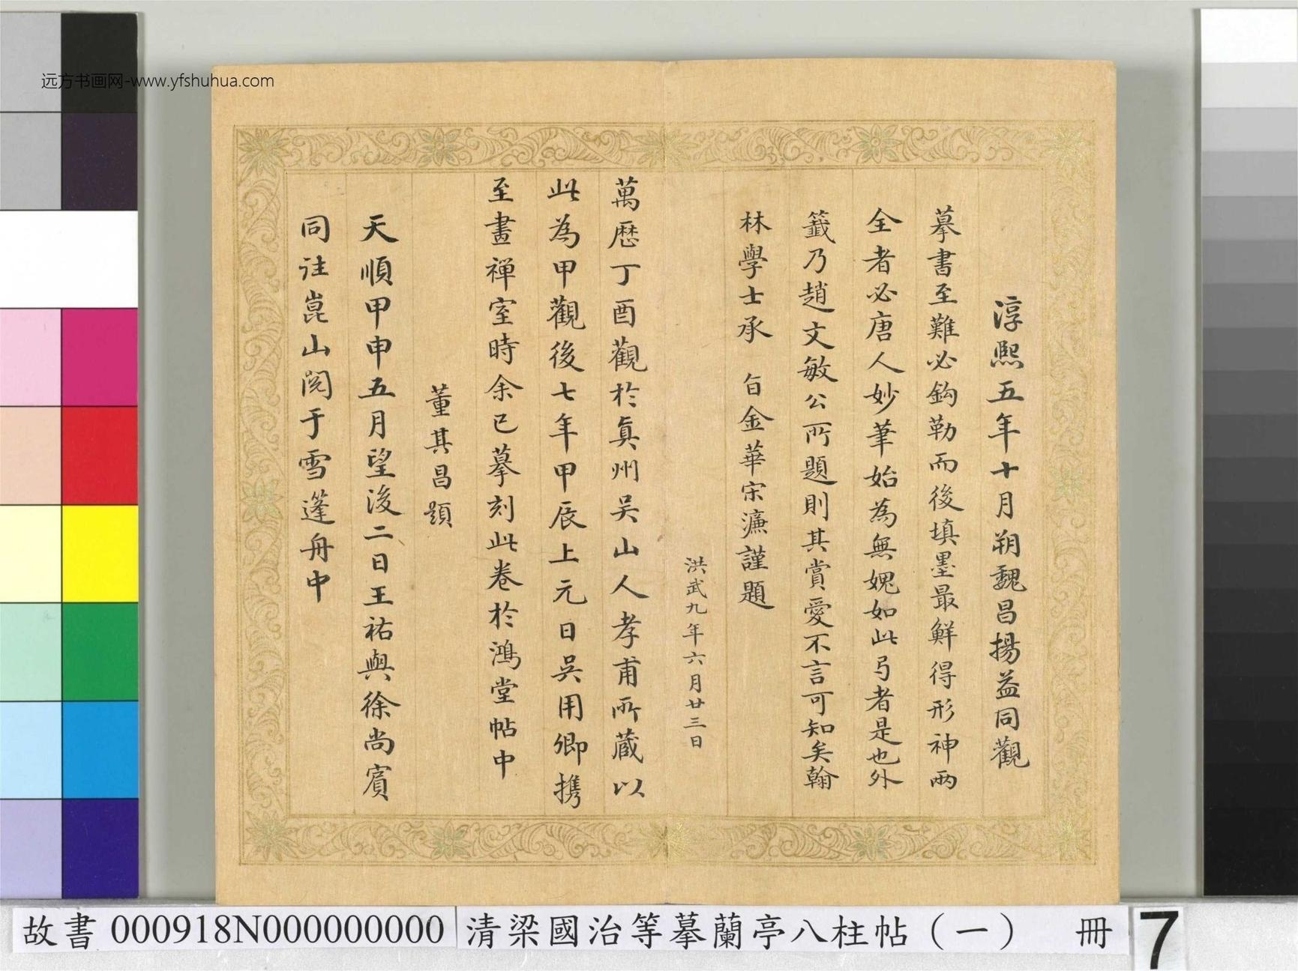 远方书画网-www.yfshuhua.com
淳熙五年十月朔魏昌揚益同觀
摹書至難必鈎勒而後填墨最鮮得形神兩
全者必唐人妙筆始為無媿如此弓者是也外
籤乃趙文敏公所題則其賞愛不言可知矣翰
林學士承 旨金華宋濂謹題
洪武九年六月廿三日
萬歷丁酉觀於真州吳山人孝甫所藏以
此為甲觀後七年甲辰上元日吳用卿携
至畫禅室時余已摹刻此卷於鴻堂帖中
董其昌題
天順甲申五月望後二日王祐與徐尚賓
同注崑山閱于雪蓬舟中
故書 000918N000000000 清梁國治等摹蘭亭八柱帖（一） 冊 7